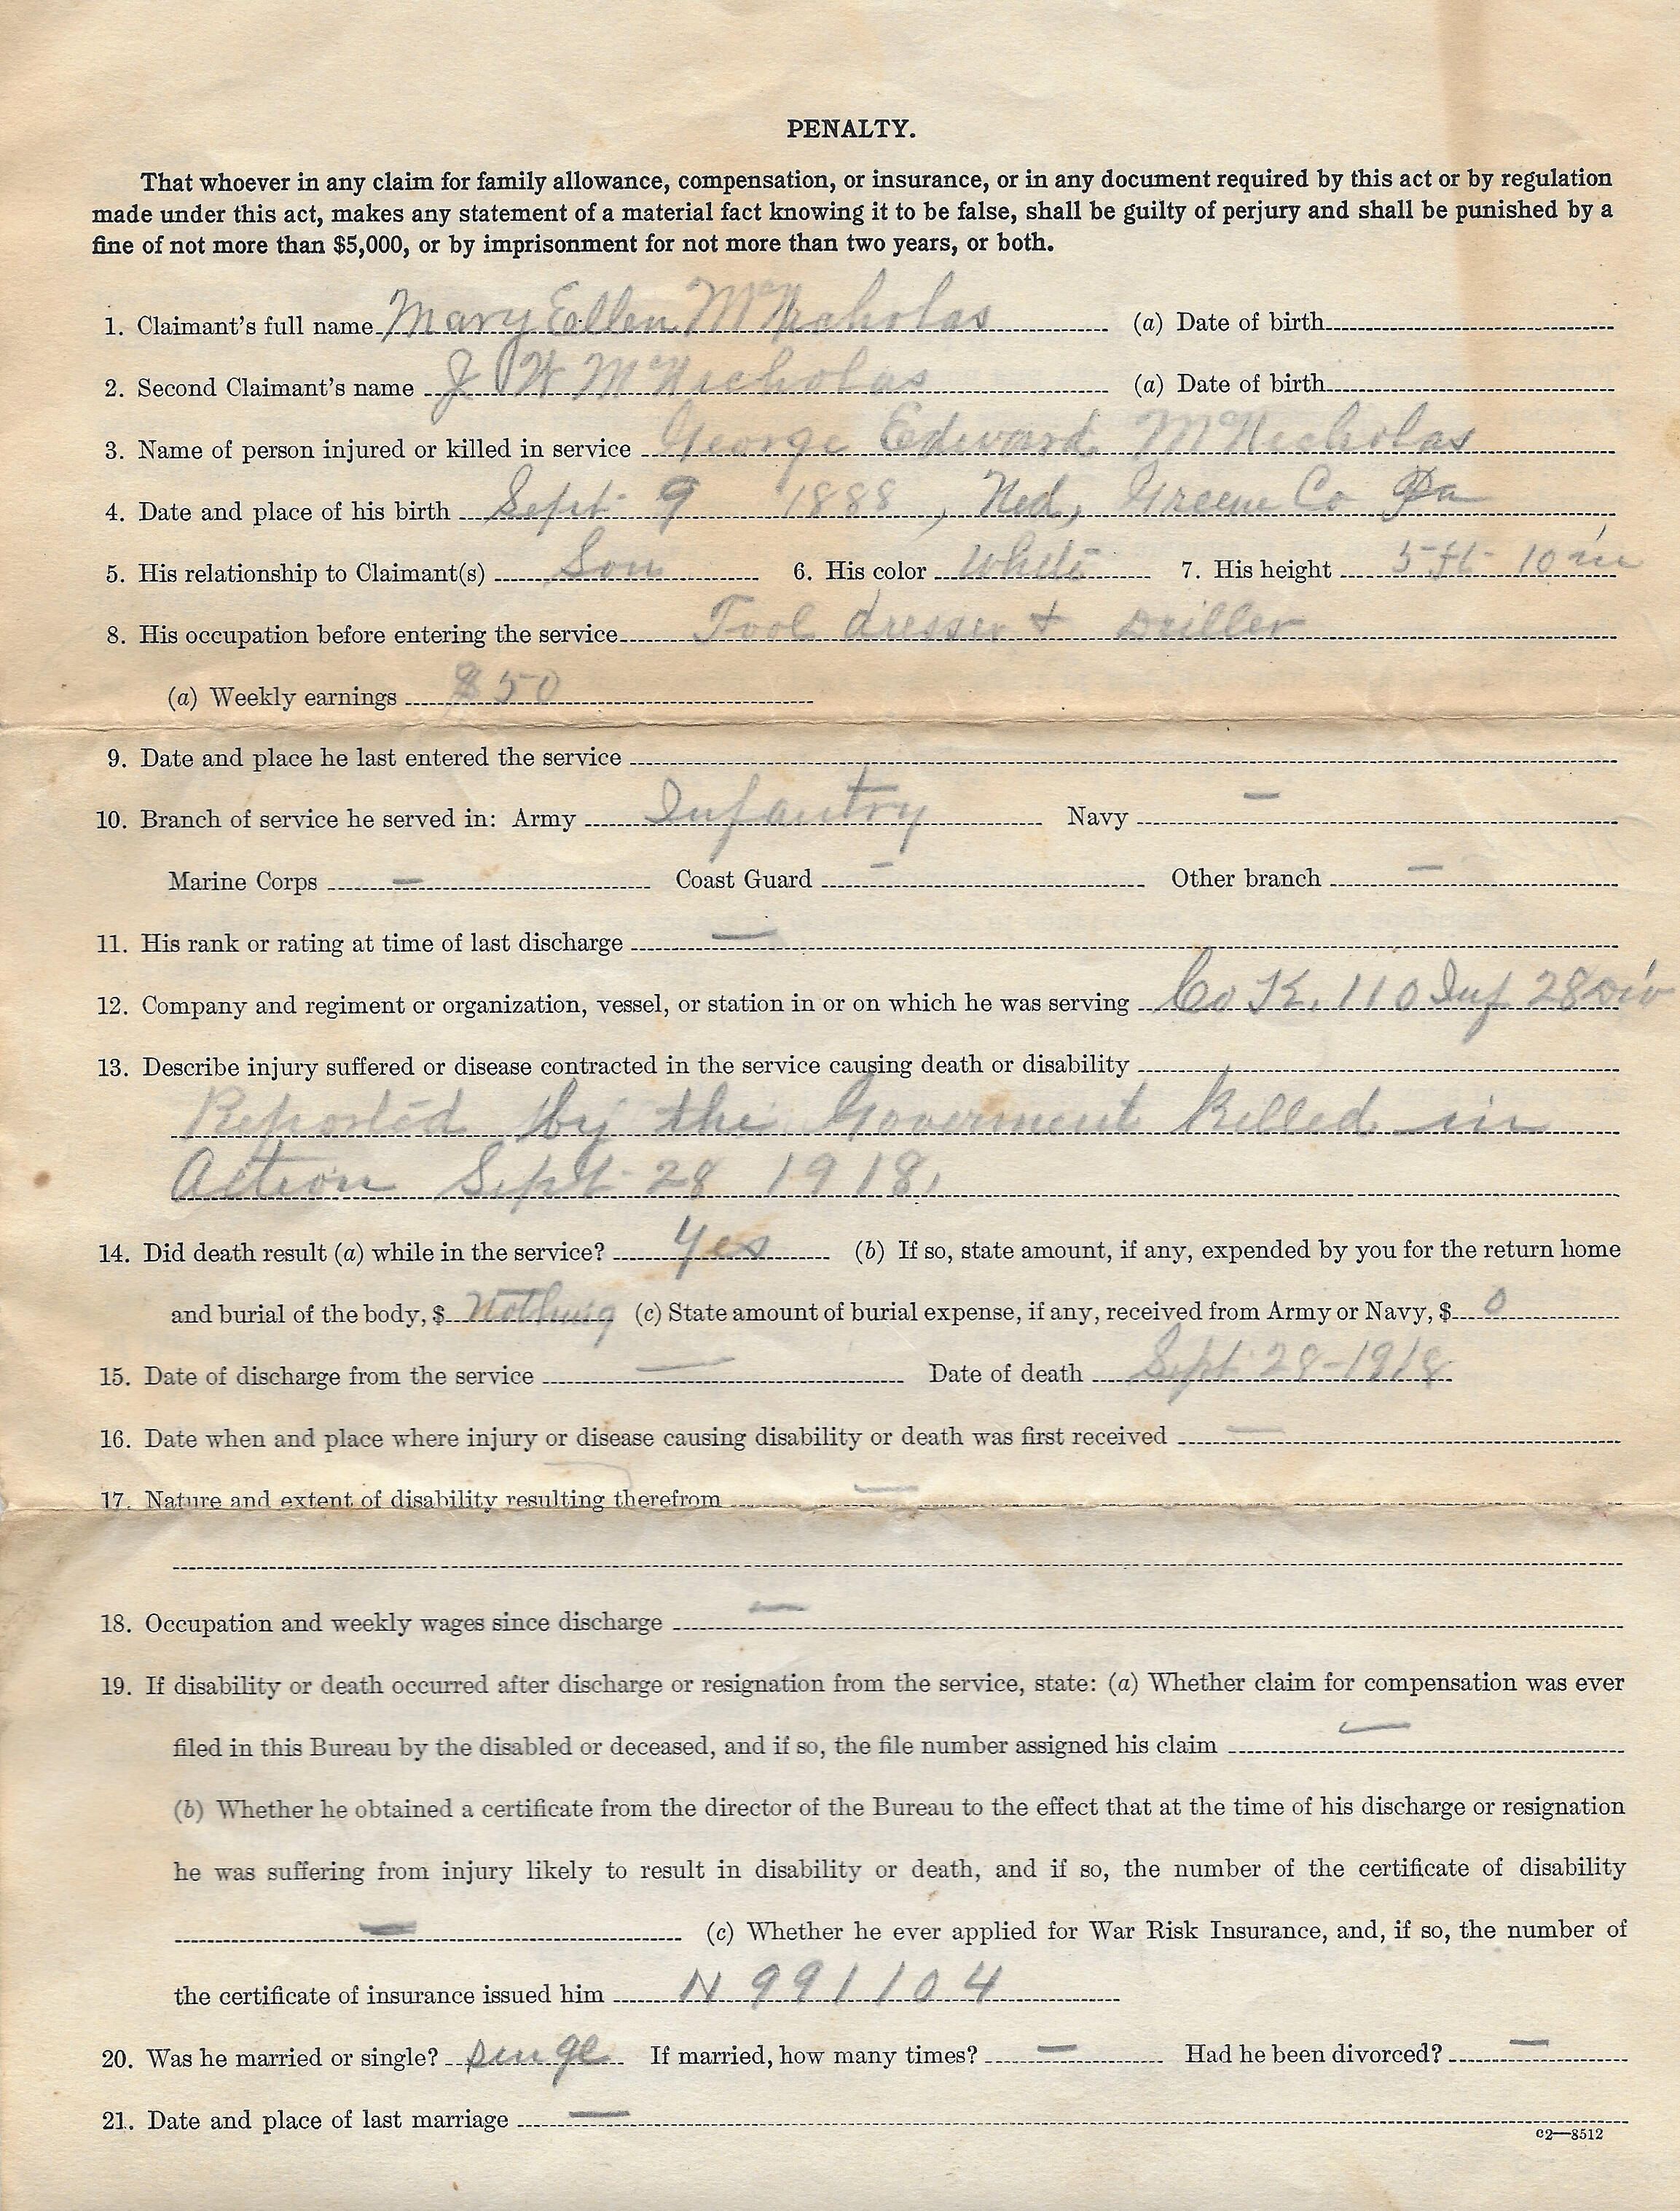 PENALTY.
That whoever in any claim for family allowance, compensation, or insurance, or in any document required by this act or by regulation
made under this act, makes any statement of a material fact knowing it to be false, shall be guilty of perjury and shall be punished by a
fine of not more than $5,000, or by imprisonment for not more than two years, or both.
1. Claimant's full name Mary Eallen McNicholas (a) Date of birth
2. Second Claimant's name J W McNicholas (a) Date of birth
3. Name of person injured or killed in service George Edward McNicholas
4. Date and place of his birth Sept 9 1888, Ned, Greene Co Pa
5. His relationship to Claimant(s) Son 6. His color White 7. His height 5 ft 10 in
8. His occupation before entering the service Tool dresser + Driller
(a) Weekly earnings $50
9. Date and place he last entered the service
10. Branch of service he served in: Army Infantry Navy —
Marine Corps — Coast Guard — Other branch —
11. His rank or rating at time of last discharge —
12. Company and regiment or organization, vessel, or station in or on which he was serving Co K. 110 Inf 28 Div
13. Describe injury suffered or disease contracted in the service causing death or disability
Reported by the Goverment Killed in
Action Sept 28 1918,
14. Did death result (a) while in the service? Yes (b) If so, state amount, if any, expended by you for the return home
and burial of the body, $ Nothing (c) State amount of burial expense, if any, received from Army or Navy, $ 0
15. Date of discharge from the service — Date of death Sept 28-1918
16. Date when and place where injury or disease causing disability or death was first received —
17. Nature and extent of disability resulting therefrom —
18. Occupation and weekly wages since discharge —
19. If disability or death occurred after discharge or resignation from the service, state: (a) Whether claim for compensation was ever
filed in this Bureau by the disabled or deceased, and if so, the file number assigned his claim —
(b) Whether he obtained a certificate from the director of the Bureau to the effect that at the time of his discharge or resignation
he was suffering from injury likely to result in disability or death, and if so, the number of the certificate of disability
— (c) Whether he ever applied for War Risk Insurance, and, if so, the number of
the certificate of insurance issued him N 991104
20. Was he married or single? singe If married, how many times? — Had he been divorced? —
21. Date and place of last marriage —
C2—8512